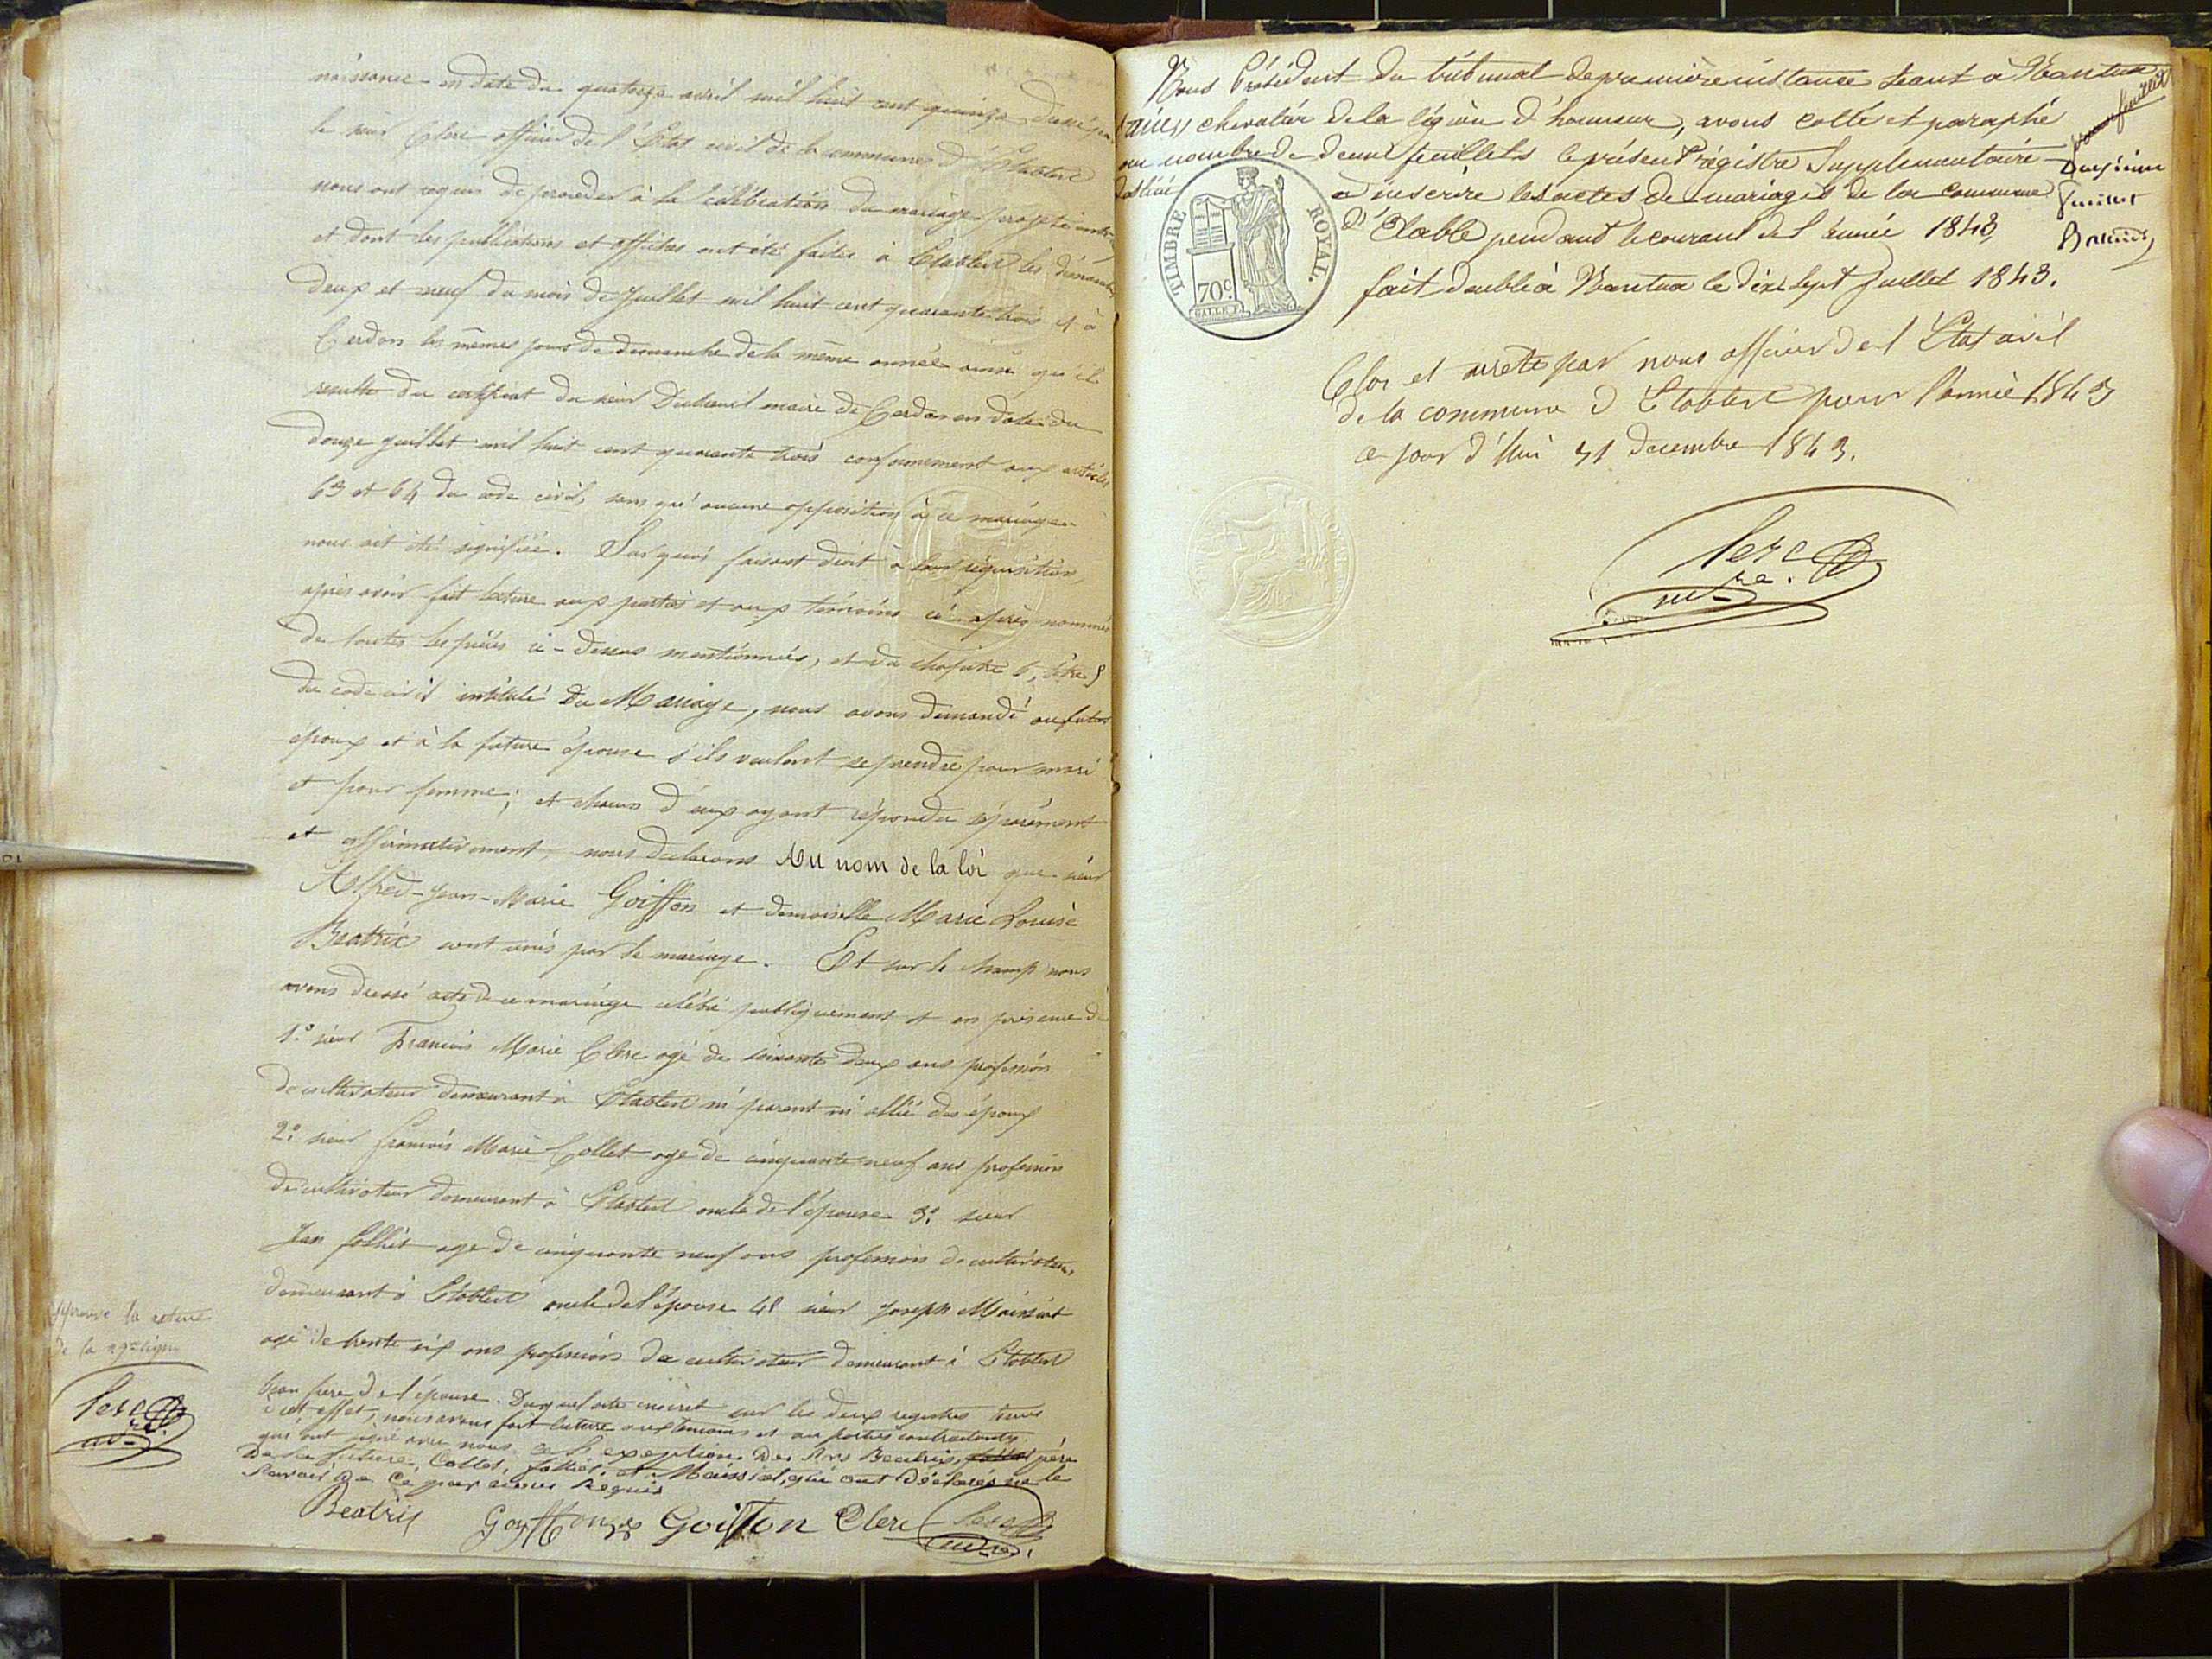 naissance en date du quatorze avril mil huit cent quinze
le sieur Clerc officier de l'Etat civil de la commune d'Etables
nous ont requis de procéder à la célébration du mariage projeté entre
et dont les publications et affiches ont été faites à Etables les dimanches
deux et neuf du mois de Juillet mil huit cent quarante trois et à
Cerdon les mêmes jours de dimanche de la même année ainsi qu'il
resulte du certificat du sieur maire de Cerdon en date du
douze juillet mil huit cent quarante trois conformement aux articles
63 et 64 du code civil, sans qu'aucune opposition à ce mariage
nous ait été signifiée. Sur quoi faisant droit à leur réquisition,
après avoir fait lecture aux parties et aux témoins ci-après nommés
de toutes les pièces ci-dessus mentionnées, et du chapitre 6, titre 5
du code civil intitulé Du Mariage, nous avons demandé au futur
époux et à la future épouse s'ils veulent se prendre pour mari
et pour femme; et chacun d'eux ayant répondu séparément
et affirmativement, nous declarons Au nom de la loi que sieur
Alfred-Jean-Marie Goiffon et demoiselle Marie Louise
Beatrix sont unis par le mariage. Et sur le champ nous
avons dressé acte de ce mariage célébré publiquement et en présence de
1.° sieur Francois Marie Clerc agé de soixante deux ans profession
de cultivateur demeurant à Etables ni parent ni allié des époux
2.° sieur francois Marie Collet agé de cinquante neuf ans profession
de cultivateur demeurant à Etables oncle de l'épouse 3.° sieur
Jean folliet age de cinquante neuf ans profession de cultivateur
demeurant à Etables oncle de l'épouse 4° sieur Joseph Maissiat
agé de trente six ans profession de cultivateur demeurant à Etables
beau frere de l'épouse. Duquel acte inscrit sur les deux registres tenus
à cet effet, nous avons fait lecture aux temoins et au parties contractantes
qui ont signé avec nous à l'exeption des Srs Beatrix, père
De la future, Collet, folliet, et Maissiat, qui ont déclarés ne le
savoir De ce par nous Requis
Approuvé la rature
de la ligne
Clerc
Beatrix Goyffon Goiffon Clerc Clerc
Nous Président du tribunal de première instance séant à Nantua
chevalier de la légion d'honneur, avons cotté et paraphé
au nombre de deux feuillets le présent régistre Supplementaire
destiné à inscrire les actes de mariages de la commune
d'Etable pendant le courant de l'année 1843
fait double à Nantua le dix sept Juillet 1843.
Deuxième
feuillet
TIMBRE ROYAL.
70c.
Clos et arrêté par nous officier de l'Etat civil
de la commune d'Etables pour l'année 1843
ce jour d'hui 31 decembre 1843.
Clerc